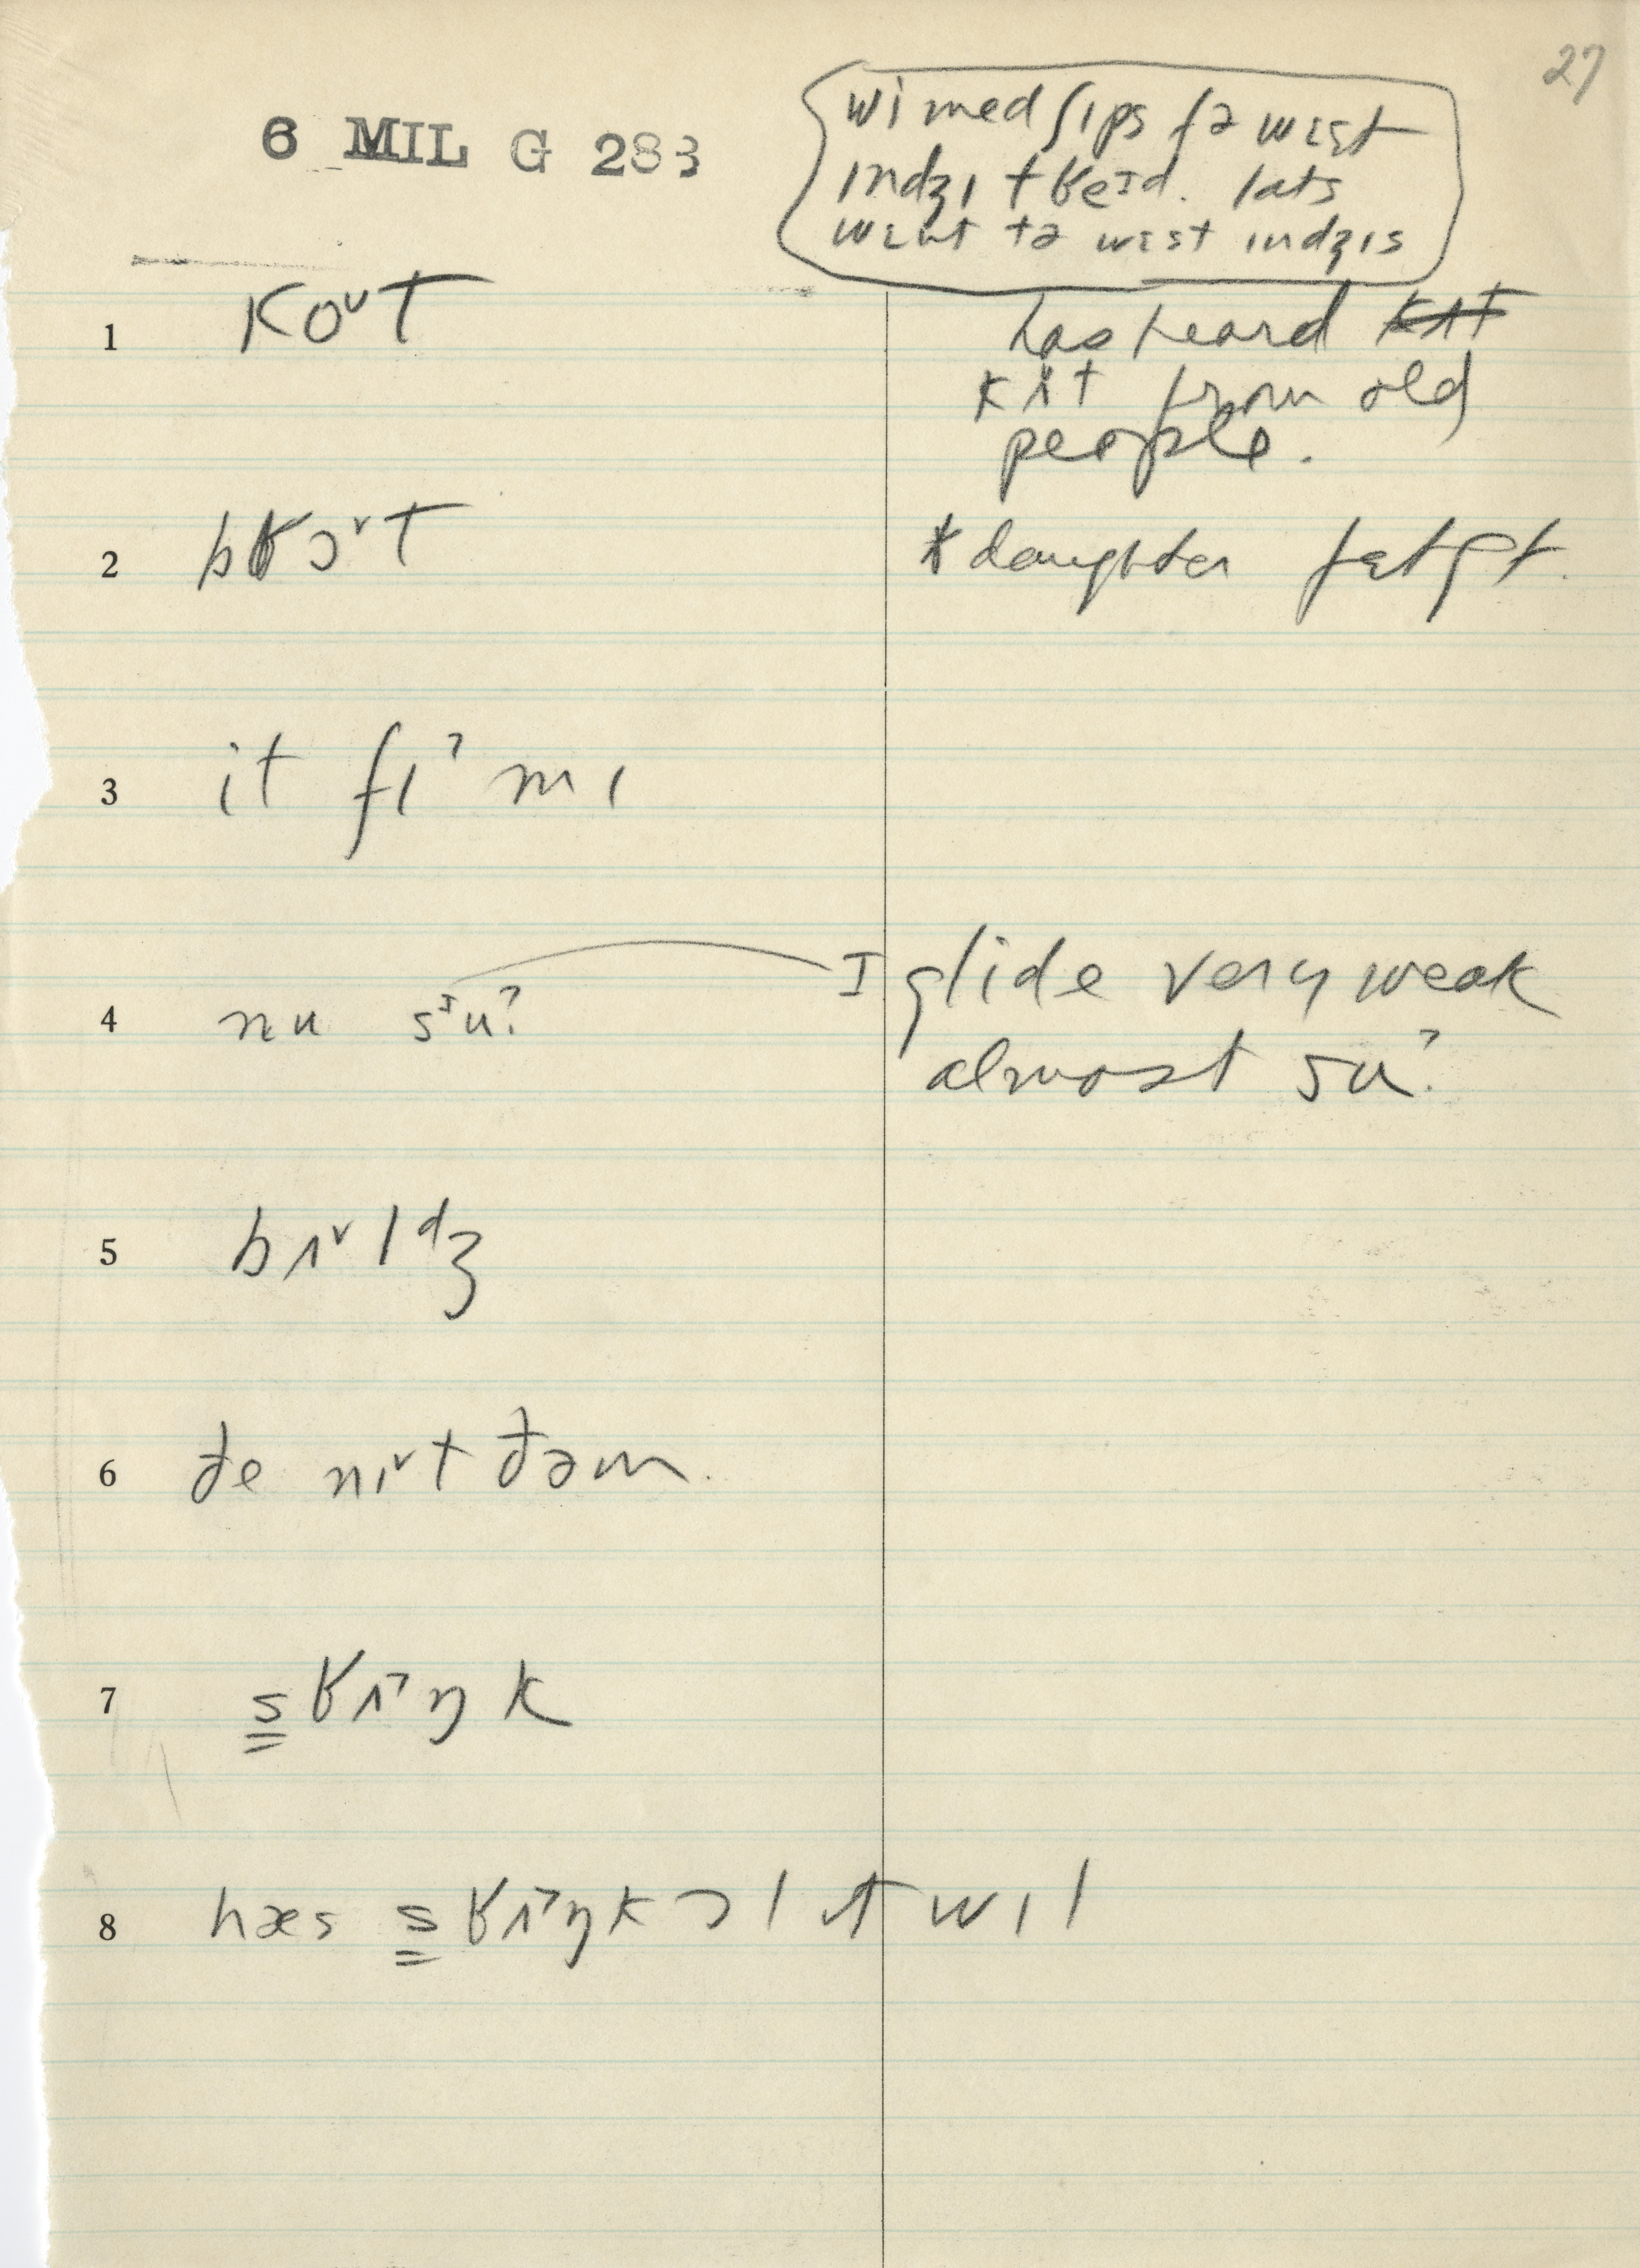 27
6 MIL G 283
wi med ʃɪps fə wɛst
ɪndʒɪ tʁeɪd. lats
wɛnt tə wɛst ɪndʒɪs
1 koᵛt
has heard kʌt
kʌt from old
people.
2 bʁɔᵛt
daughter
3 it fɪˀ mɪ
4 nu sᴵu?
I glide very weak
almost su?
5 bʌᵛlᵈʒ
6 ðe nɪᵛt ðəm.
7 s̳ʁʌˀŋk
8 hæs s̳ʁʌˀŋk ɔl ʌt wɪl